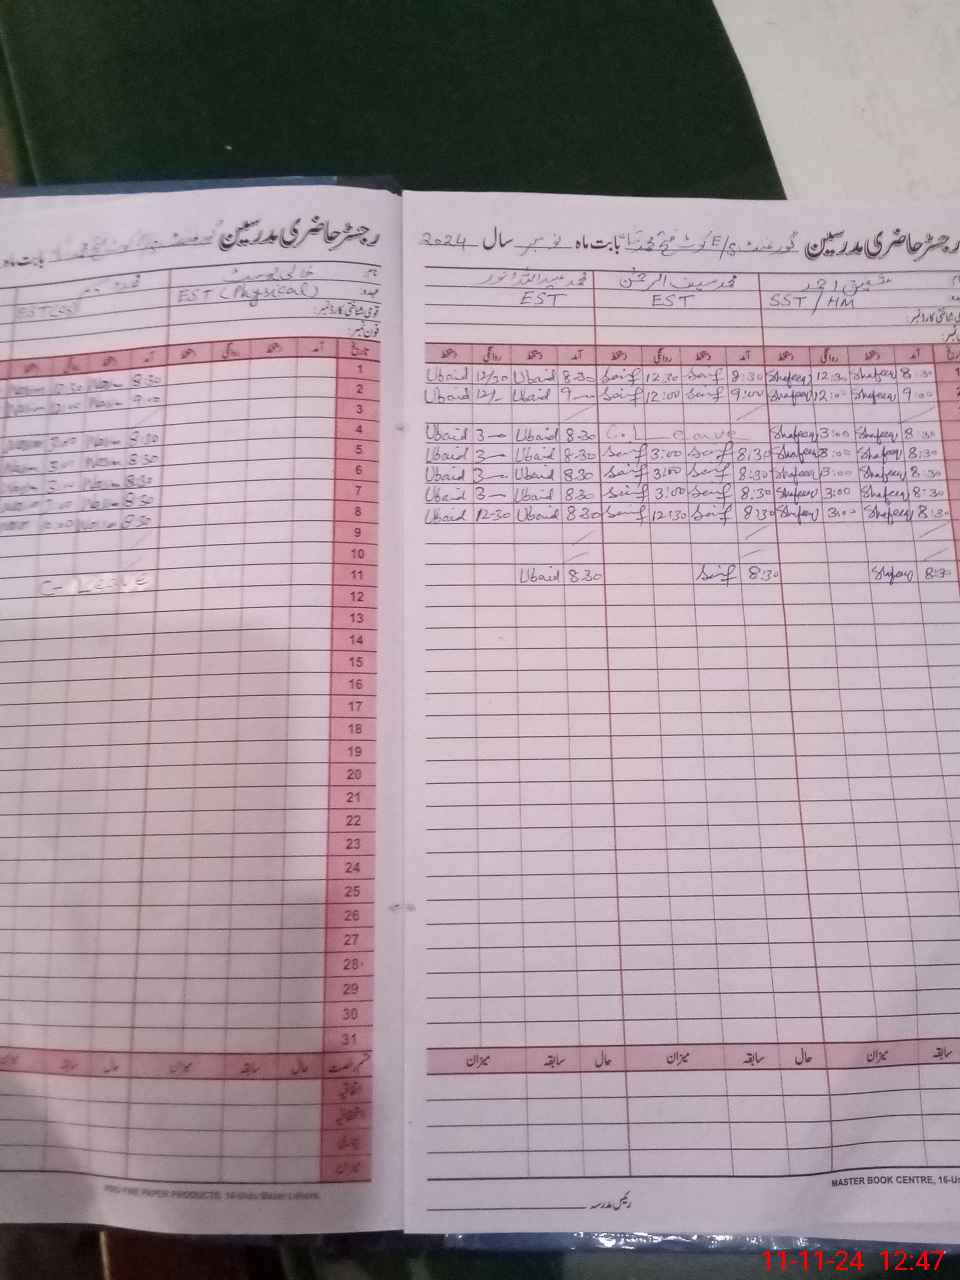 رجسٹر حاضری مدرسین گورنمنٹ E/S کوٹ فتح محمد بابت ماہ نومبر سال 2024
شفیق احمد محمد سیف الرحمن
SST/HM EST EST
قومی شناختی کارڈ نمبر:
آمد دستخط روانگی دستخط آمد دستخط روانگی دستخط آمد دستخط روانگی دستخط
8:30 Shafeeq 12:30 Shafeeq 8:30 Saif 12:30 Saif 8.30 Ubaid 12/30 Ubaid
9:00 Shafeeq 12:00 Shafeeq 9:00 Saif 12:00 Saif 9— Ubaid 12/- Ubaid
8:30 Shafeeq 3:00 Shafeeq C.L Leave 8.30 Ubaid 3— Ubaid
8:30 Shafeeq 3:00 Shafeeq 8:30 Saif 3:00 Saif 8.30 Ubaid 3— Ubaid
8:30 Shafeeq 3:00 Shafeeq 8:30 Saif 3:00 Saif 8.30 Ubaid 3— Ubaid
8:30 Shafeeq 3:00 Shafeeq 8:30 Saif 3:00 Saif 8.30 Ubaid 3— Ubaid
8:30 Shafeeq 3:00 Shafeeq 8:30 Saif 12:30 Saif 8.30 Ubaid 12-30 Ubaid
8:30 Shafeeq 8:30 Saif 8.30 Ubaid
سابقہ میزان حال سابقہ میزان حال سابقہ میزان
MASTER BOOK CENTRE, 16-U
رئیس مدرسہ
رجسٹر حاضری مدرسین گورنمنٹ بابت ماہ
نام:
عہدہ: EST (Physical)
قومی شناختی کارڈ نمبر:
فون نمبر:
تاریخ آمد دستخط روانگی دستخط آمد دستخط روانگی دستخط
1 8:30 Nasim 12:30 Nasim
2 9:00 Nasim 12:00 Nasim
3
4 8:30 Nasim 3:00
5 8:30 Nasim 3:00 Nasim
6 8:30
7 8:30
8 8:30
9
10
11 C- Leave
12
13
14
15
16
17
18
19
20
21
22
23
24
25
26
27
28
29
30
31
قسم رخصت حال سابقہ میزان حال سابقہ میزان
اتفاقیہ
استحقاقیہ
بیماری
میزان
PAPER PRODUCTS, 16-Urdu Bazar Lahore.
11-11-24 12:47